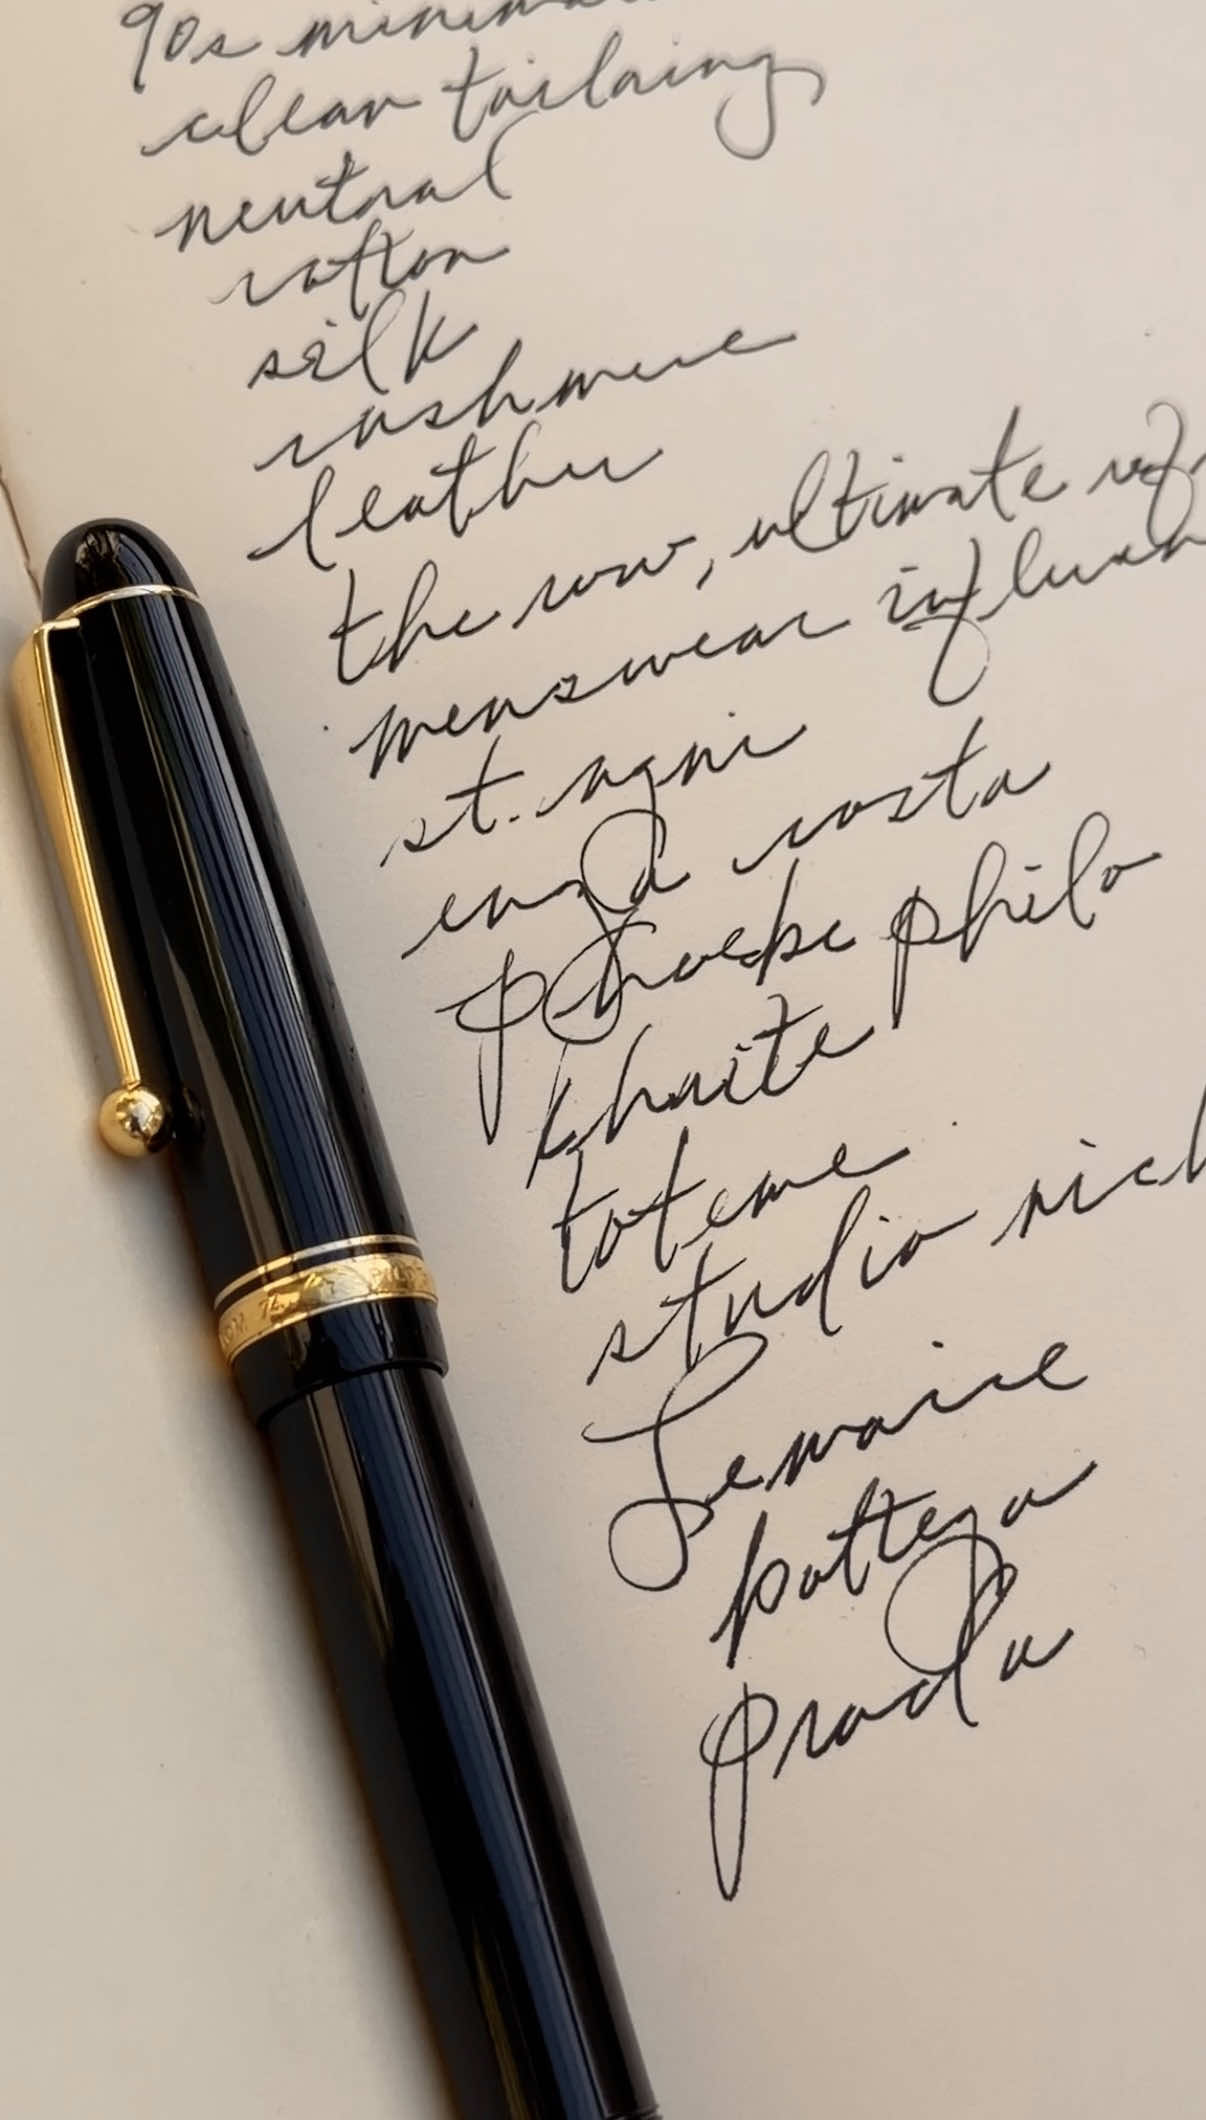 90s minima
clean tailoring
neutral
cotton
silk
cashmere
leather
the row, ultimate ref
menswear influen
st. agni
enza costa
phoebe philo
khaite
toteme
studio nich
Lemaire
bottega
prada